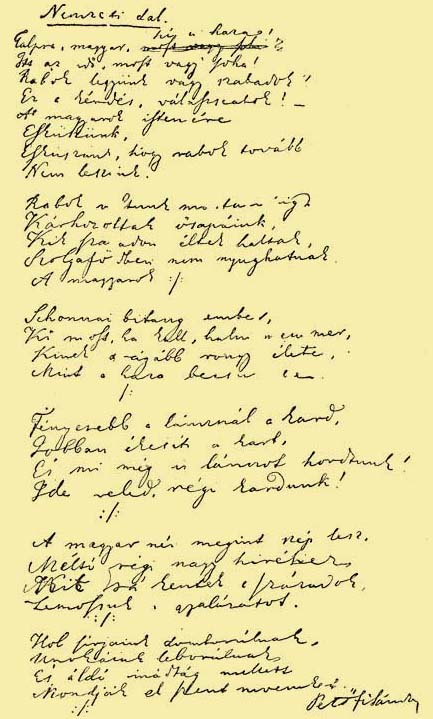 Nemzeti dal.
hí a haza!
Talpra, magyar, most vagy soha!
Itt az idő, most vagy soha!
Rabok legyünk vagy szabadok?
Ez a kérdés, válasszatok! –
A magyarok istenére
Esküszünk,
Esküszünk, hogy rabok tovább
Nem leszünk.
Rabok voltunk mostanáig,
Kárhozottak ősapáink,
Kik szabadon éltek haltak,
Szolgaföldben nem nyughatnak.
A magyarok :/:
Sehonnai bitang ember,
Ki most, ha kell, halni nem mer,
Kinek drágább rongy élete,
Mint a haza becsülete.
:/:
Fényesebb a láncznál a kard,
Jobban ékesíti a kart,
És mi még is lánczot hordtunk!
Ide veled, régi kardunk!
:/:
A magyar név megint szép lesz,
Méltó régi nagy hiréhez,
Mit rá kentek a századok,
Lemossuk a gyalázatot.
:/:
Hol sírjaink domborulnak,
Unokáink leborulnak,
És áldó imádság mellett
Mondják el szent neveinket.
:/:
Petőfi Sándor